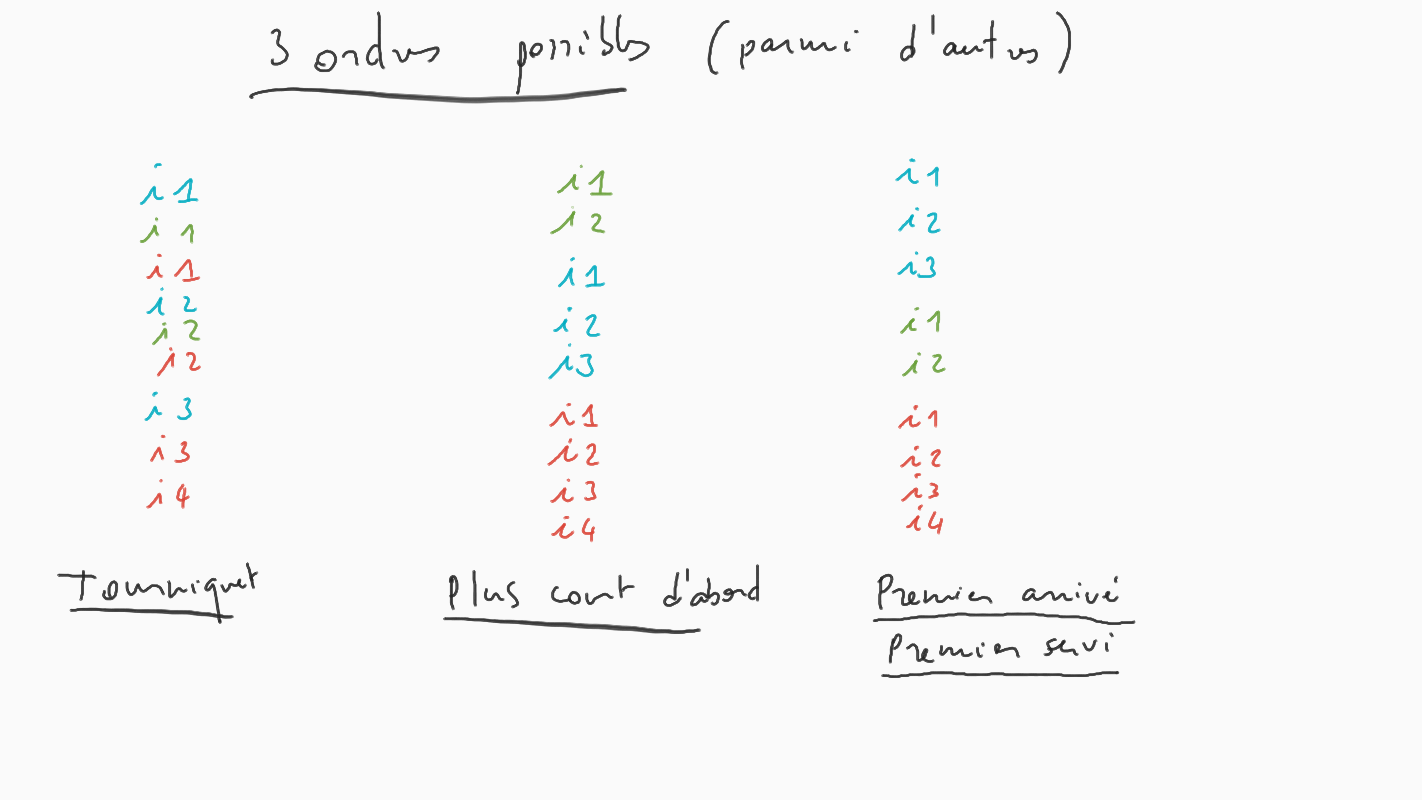 3 ordres possibles (parmi d'autres)
i1
i1
i1
i2
i2
i2
i3
i3
i4
Tourniquet
i1
i2
i1
i2
i3
i1
i2
i3
i4
Plus court d'abord
i1
i2
i3
i1
i2
i1
i2
i3
i4
Premier arrivé
Premier servi